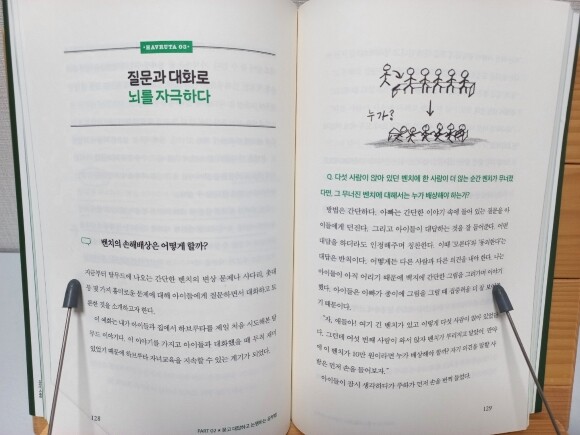 HAVRUTA 03
질문과 대화로
뇌를 자극하다
벤치의 손해배상은 어떻게 할까?
지금부터 탈무드에 나오는 간단한 벤치의 변상 문제나 사다리, 굴뚝
등 몇 가지 흥미로운 문제에 대해 아이들에게 질문하면서 대화하고 토
론한 것을 소개하고자 한다.
이 예화는 내가 아이들과 집에서 하브루타를 제일 처음 시도해본 탈
무드 이야기다. 이 이야기를 가지고 아이들과 대화했을 때 무척 재미
있었기 때문에 하브루타 자녀교육을 지속할 수 있는 계기가 되었다.
128
누가?
Q. 다섯 사람이 앉아 있던 벤치에 한 사람이 더 앉는 순간 벤치가 무너졌
다면, 그 무너진 벤치에 대해서는 누가 배상해야 하는가?
방법은 간단하다. 아빠는 간단한 이야기 속에 들어 있는 질문을 아
이들에게 던진다. 그리고 아이들이 대답하는 것을 잘 들어준다. 어떤
대답을 하더라도 인정해주어 칭찬한다. 이때 '모른다'와 '동의한다'는
대답은 반칙이다. 어떻게든 다른 사람과 다른 의견을 내야 한다. 나는
아이들이 아직 어리기 때문에 백지에 간단한 그림을 그려가며 이야기
했다. 아이들은 아빠가 종이에 그림을 그릴 때 집중력을 더 잘
기 때문이다.
"자, 애들아! 여기 긴 벤치가 있고 이렇게 다섯 사람이 앉아 있었
다. 그런데 여섯 번째 사람이 와서 앉자 벤치가 무너지고 말았어. 만약
에 이 벤치가 10만 원이라면 누가 배상해야 할까? 자기 의견을 말할 사
람은 먼저 손을 들어보자."
아이들이 잠시 생각하더니 우와가 먼저 손을 번쩍 들었다.
129